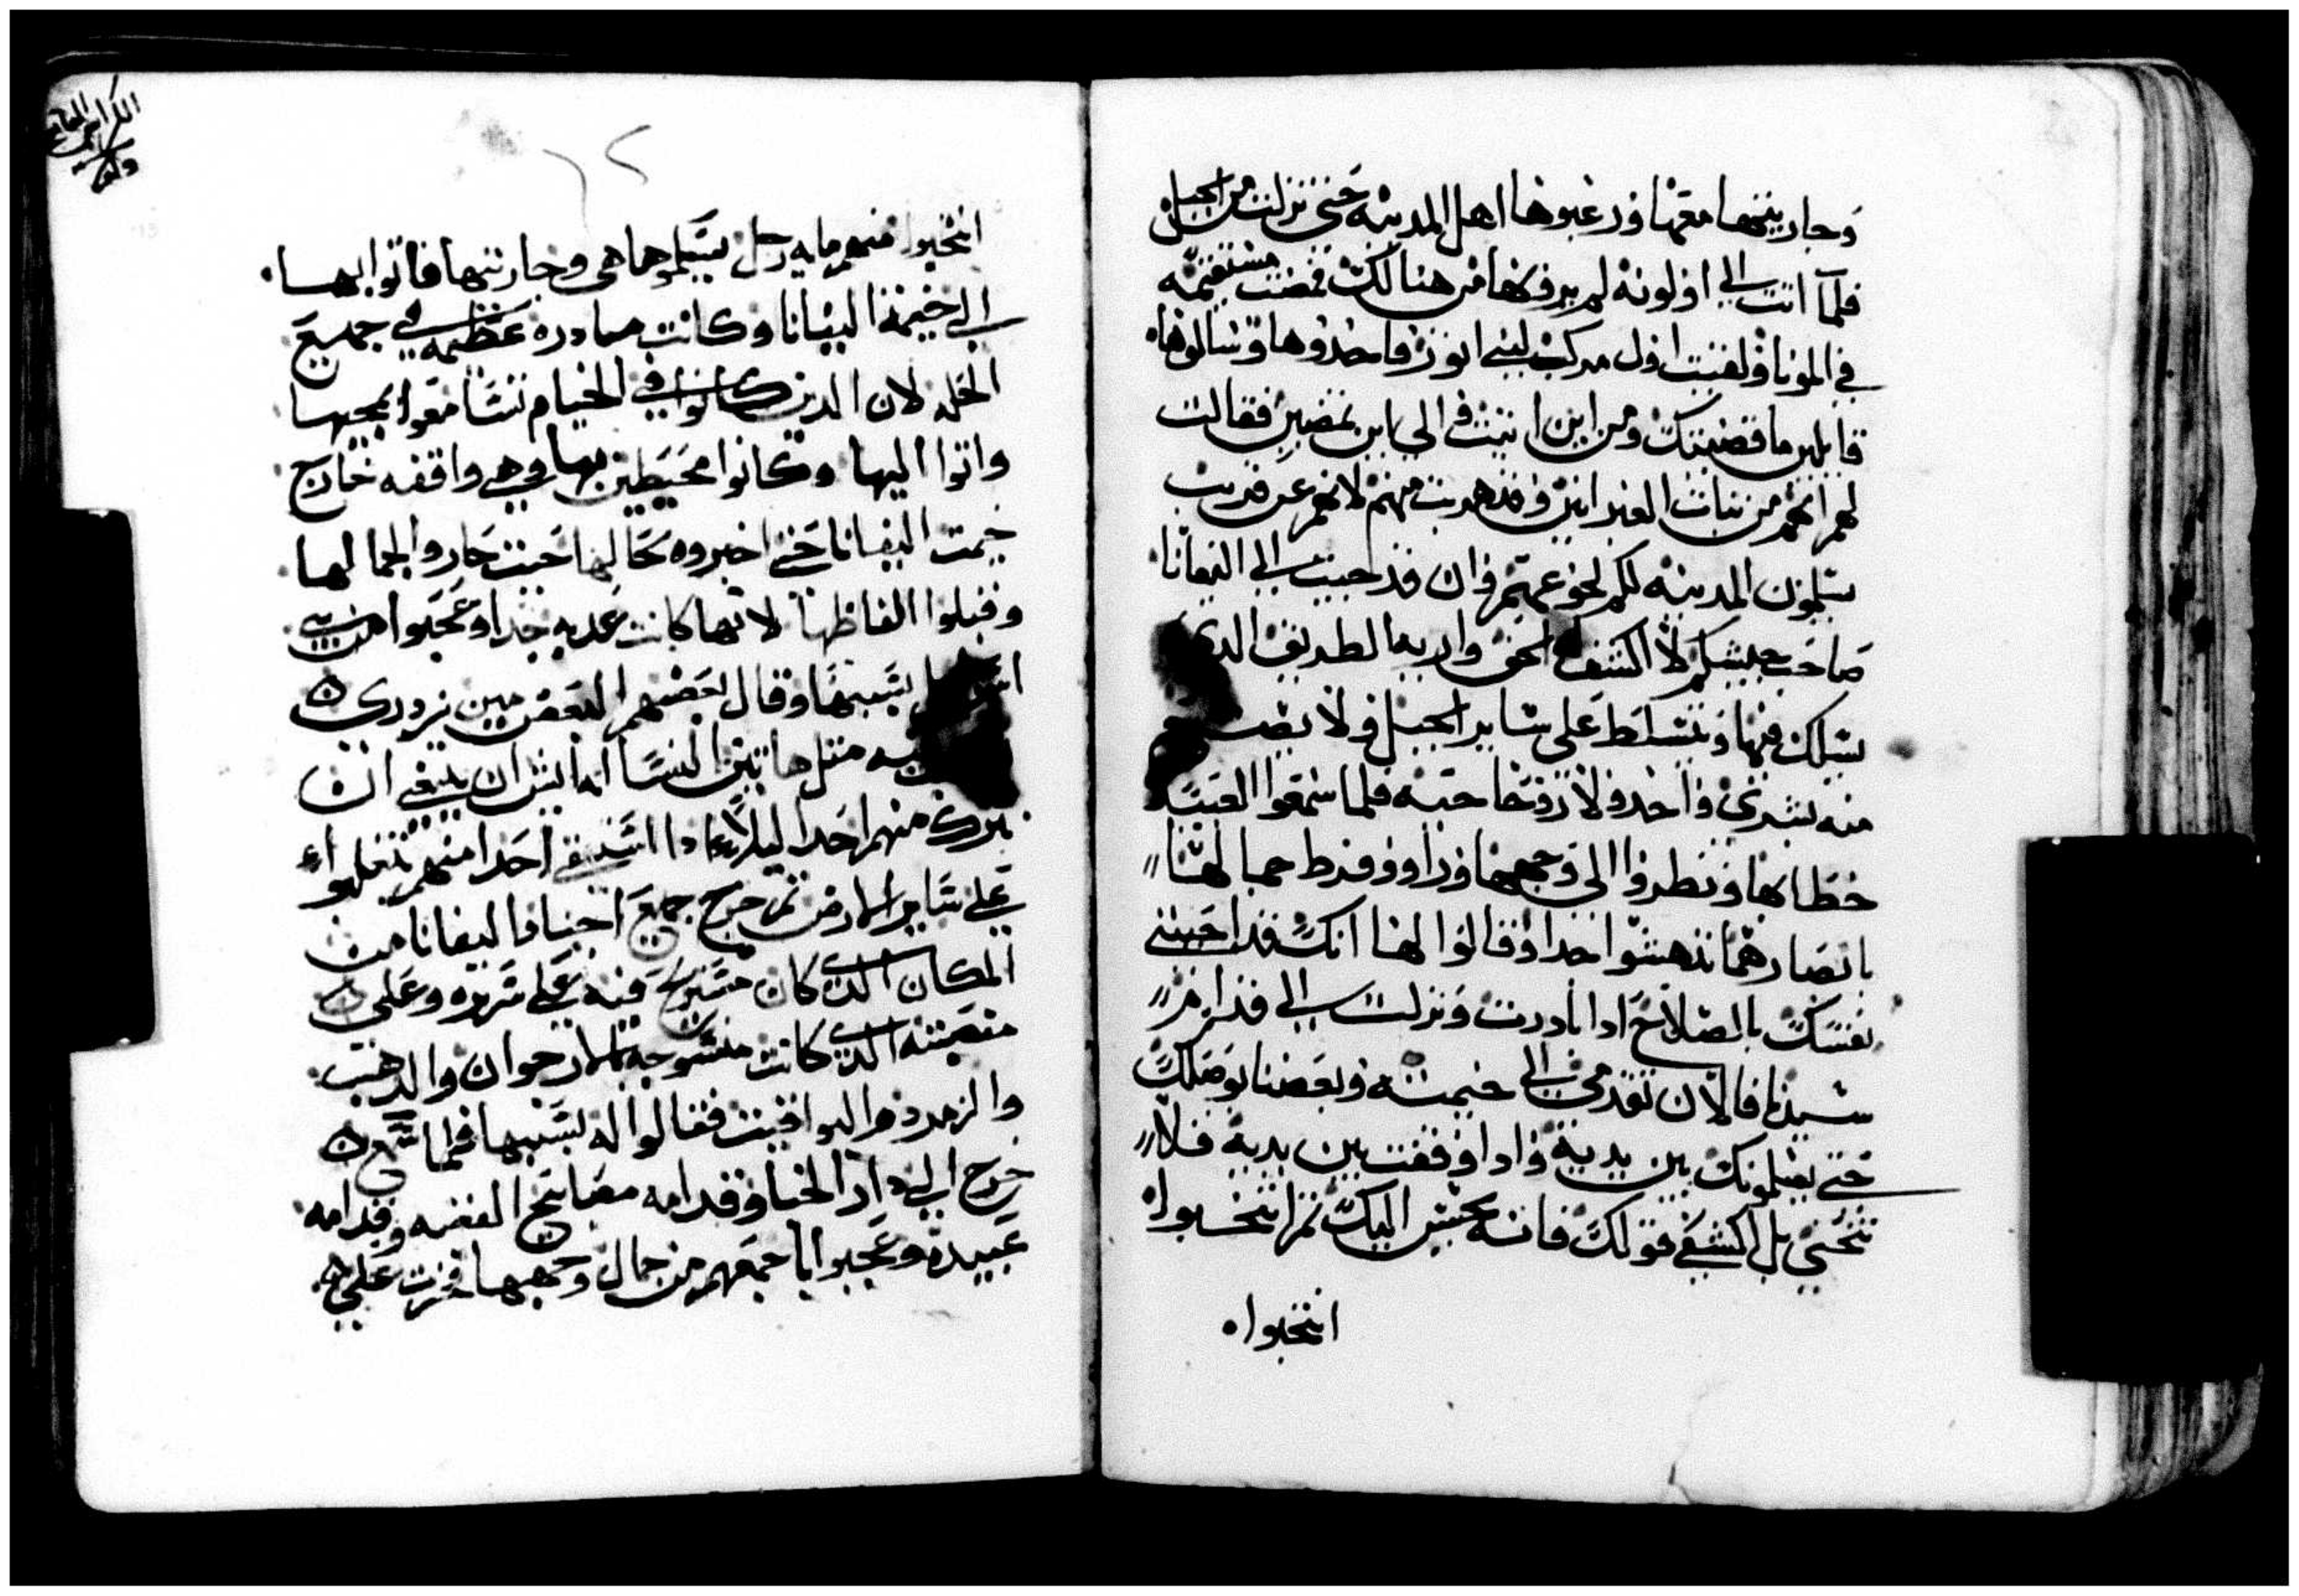 وجاريتها معها ورعبوها اهل المدينه حتى نزلت من الجبل
فلما اتت الى اولونه لم يروها من هنالك فمضت مستقيمه
في المونا ولقيت اول مركب لبني اتور فاخذوها وسالوها
قايلين ما قضيتك ومن اين اتيت والى اين تمضين فقالت
لهم انهم من بنات العبرانيين وقد هربت منهم لانهم عن قريب
يسلمون المدينه لكم لنحو عمتهم وان قد جيت الى اليفانا
صاحب جيشكم لاكشف له الحق واريه الطريق الذي
يسلك فيها ويتسلط على ساير الجبل ولا يضيع
منه بشري واحد ولا روحا حيه فلما سمعوا القيت
خطابها ونظروا الى وجهها وراوو فرط جمالها
بابصارهم اندهشوا جدا وقالوا لها انك قد احييتي
نفسك بالصلاح اذا بادرت ونزلت الى قدام
سيدنا فالان تقدمي الى خيمته وبعضنا يوصلك
حتى يسلمونك بين يديه واذا وقفت بين يديه فلا
تخشي بل اكشفي قولك فانه يحسن اليك ثم انتخبوا
انتخبوا
الكراس السابع
انتخبوا منهم مايه رجل يسلموها هي وجاريتها فاتوا بها
الى خيمة اليفانا وكانت مبادره عظيمه في جميع
الحله لان الذين كانوا في الخيام تسامعوا بمجيها
واتوا اليها وكانوا محيطين بها وهي واقفه خارج
خيمت اليفانا حتى اخبروه بحالها حيت حاروا لجمالها
وقبلوا الفاظها لانها كانت عدبه جدا وعجبوا من بني
بسببها وقال بعضهم لبعض مين يزدري
مثل هاتين النسا انه ليس ان ينبغي ان
يترك منهم احدا ليلا اذا استبقى احدا منهم تغلبوا
على ساير الارض ثم خرج جميع اجناد اليفانا من
المكان الذي كان مستريح فيه على سريره وعلى
منصته الذي كانت منسوجه بالارجوان والدهب
والزمرد واليواقيت فقالوا له بسببها فلما سمع
خرج الى دار الخبا وقدامه مصابيح الفضه وقدامه
عبيده وعجبوا باجمعهم من جمال وجهها فخرت على